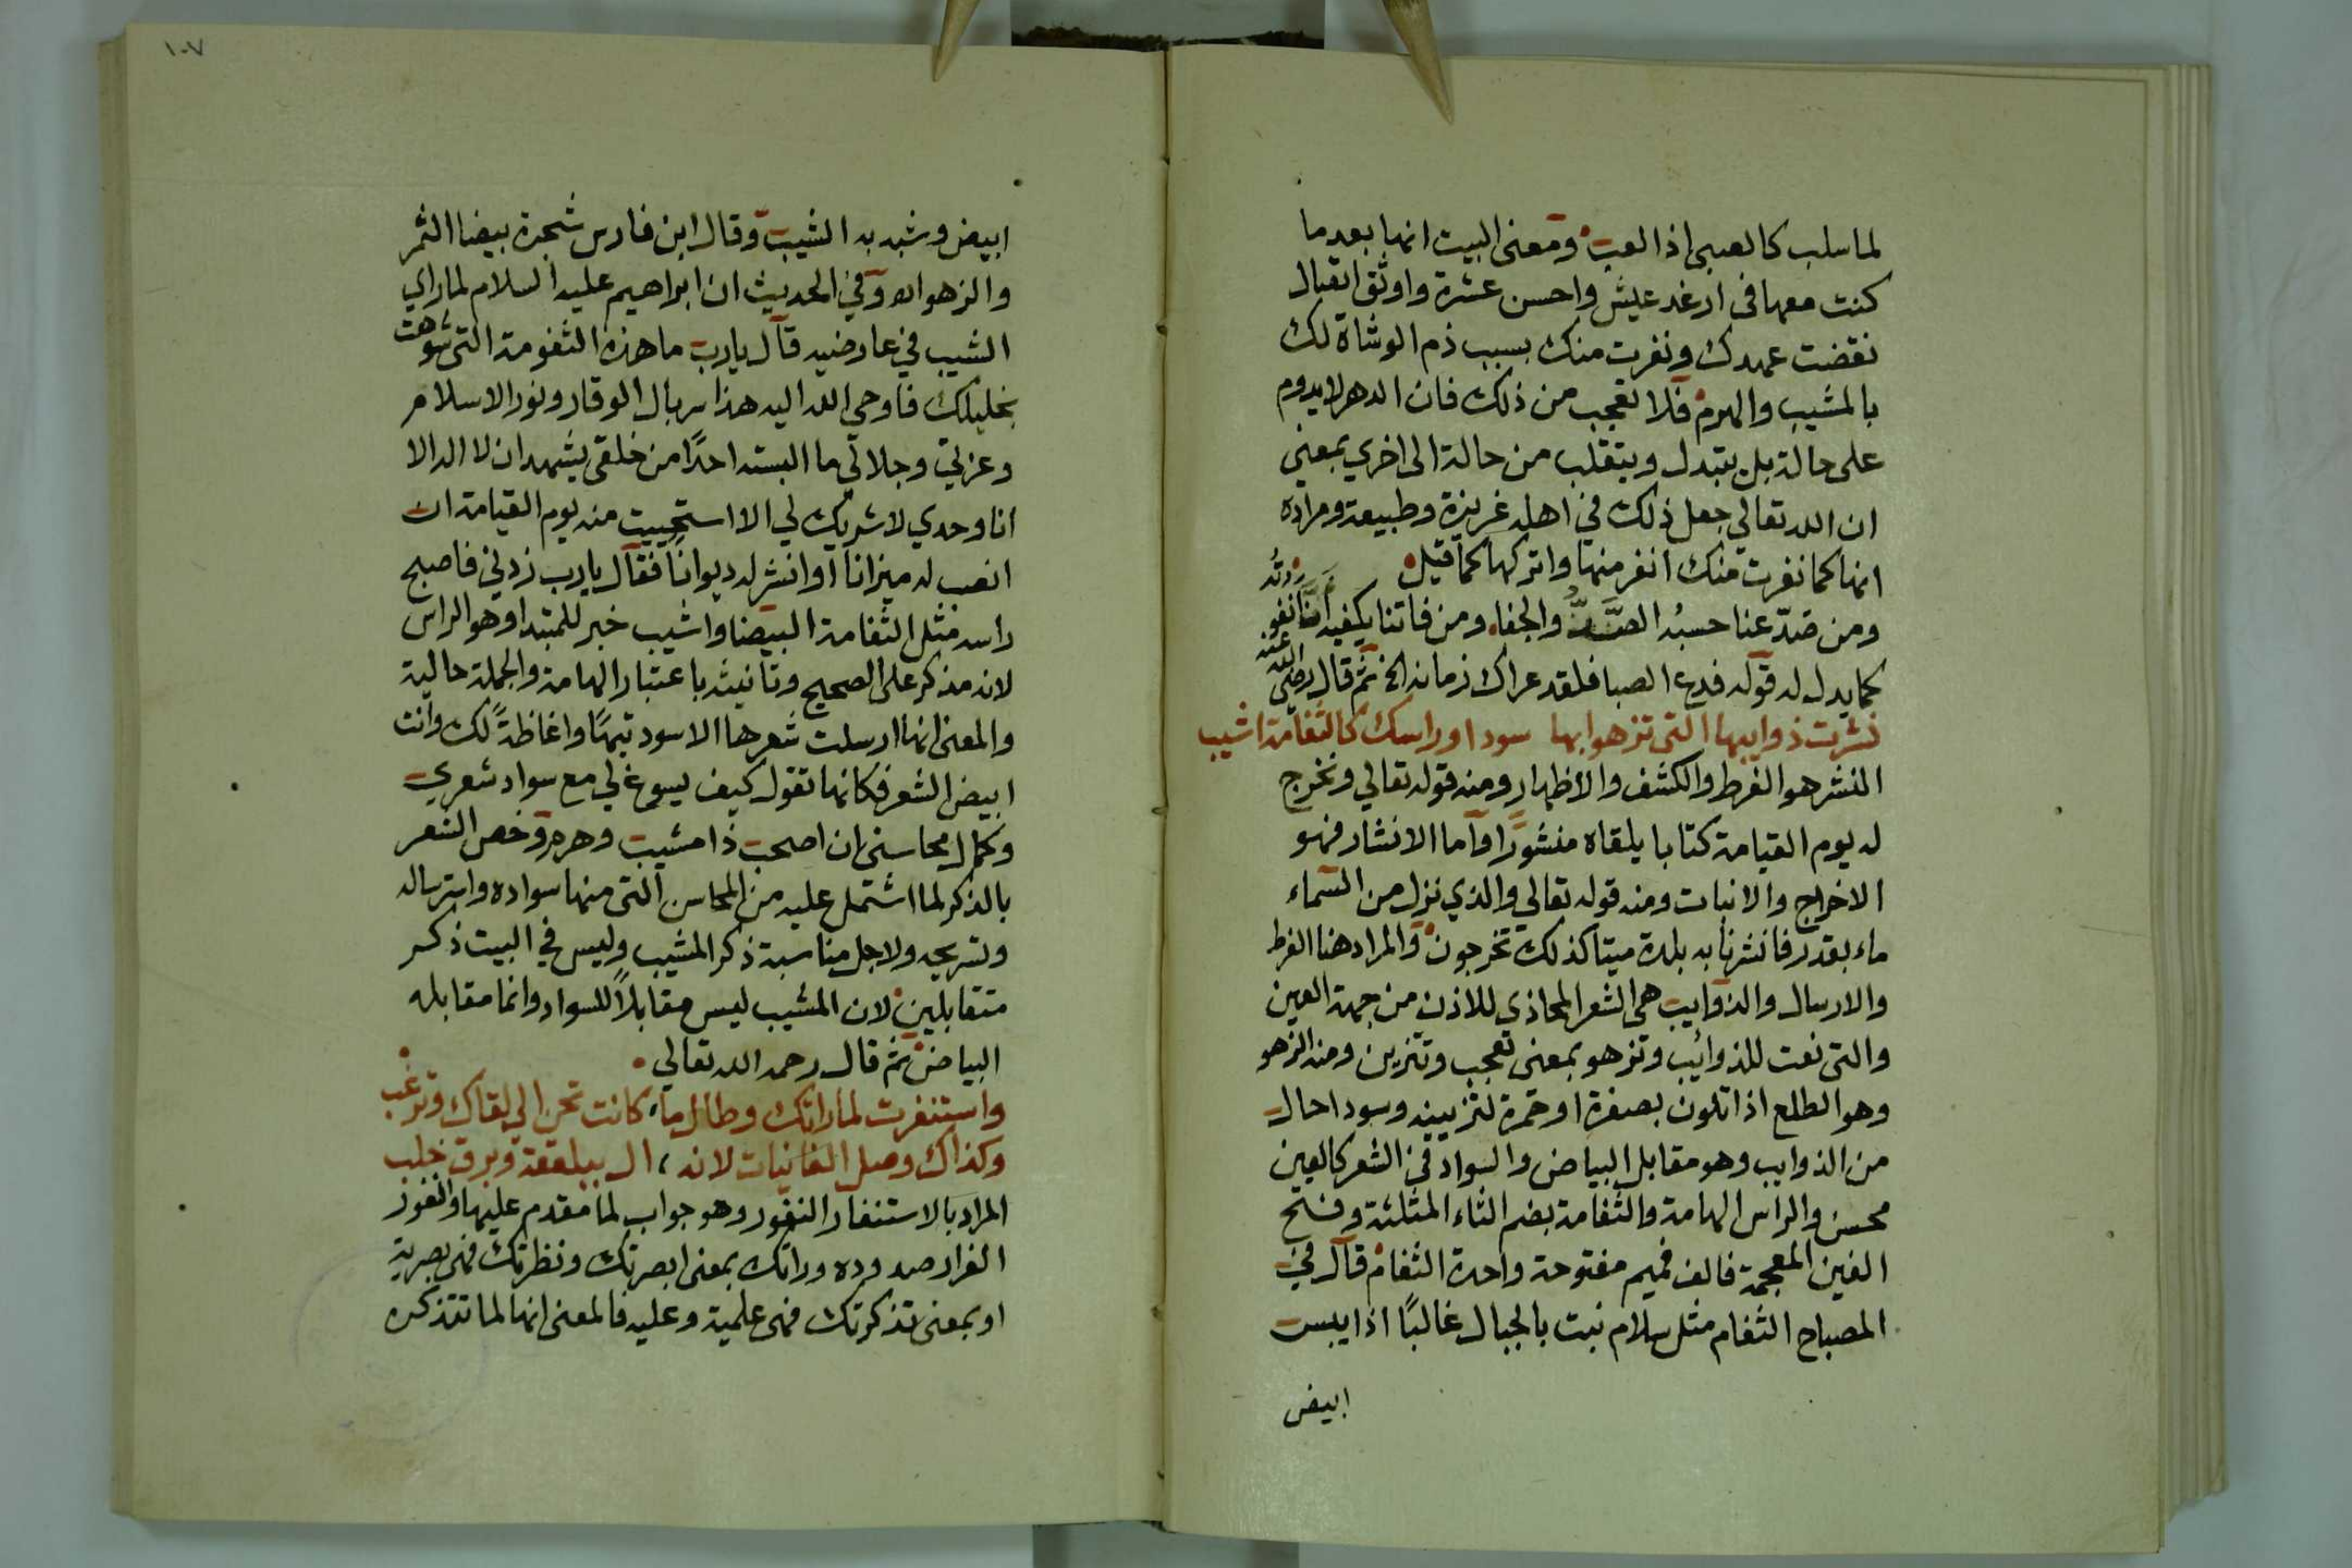 لما سلب كالصبي اذا لعب ومعنى البيت انها بعد ما
كنت معها في ارغد عيش واحسن عشرة واوثق اتصال
نقضت عهدك ونفرت منك بسبب ذم الوشاة لك
بالمشيب والهرم فلا تعجب من ذلك فان الدهر لا يدوم
على حالة بل يتبدل ويتقلب من حالة الى اخري بمعني
ان الله تعالي جعل ذلك في اهله غريزة وطبيعة ومراده
انها كما نفرت منك انفر منها واتركها كما قيل
ومن صدّ عنا حسبُه الصدُّ والجفاء ومن فاتنا يكفيه انا نفوته
كما يدل له قوله فدع الصبا فلقد عراك زمانه الخ ثم قال رضي الله عنه
نشرت ذوايبها التي تزهو ابها سودا وراسك كالثغامة اشيب
النشر هو الفرط والكشف والاظهار ومنه قوله تعالي ونخرج
له يوم القيامة كتابا يلقاه منشورًا واما الانشار فهو
الاخراج والانبات ومنه قوله تعالي والذي نزل من السماء
ماء بقدر فانشرنا به بلدة ميتا كذلك تخرجون والمراد هنا الفرط
والارسال والذوايب هي الشعر المحاذي للاذن من جهة العين
والتي نعت للذوائب وتزهو بمعنى تعجب وتتزين ومنه الزهو
وهو الطلع اذا تلون بصفرة او حمرة لتزيينه وسودا حال
من الذوايب وهو مقابل البياض والسواد في الشعر كالعين
محسن والراس الهامة والثغامة بضم الثاء المثلثة وفتح
الغين المعجمة فالف فميم مفتوحة واحدة الثغام قال في
المصباح الثغام مثل سلام نبت بالجبال غالبًا اذا يبست
ابيض
١٠٧
ابيض وشبه به الشيب وقال ابن فارس شجرة بيضا الثمر
والزهر اه وفي الحديث ان ابراهيم عليه السلام لما راي
الشيب في عارضيه قال يارب ما هذه الثغومة التي شوهت
بخليلك فاوحي الله اليه هذا سربال الوقار ونور الاسلام
وعزتي وجلالي ما البسته احدًا من خلقي يشهد ان لا اله الا
انا وحدي لا شريك لي الا استحييت منه يوم القيامة ان
انصب له ميزانًا او انشر له ديوانًا فقال يارب زدني فاصبح
راسه مثل الثغامة البيضا واشيب خبر للمبتدا وهو الراس
لانه مذكر على الصحيح وتانيثه باعتبار الهامة والجملة حالية
والمعنى انها ارسلت شعرها الاسود تيهًا واغاظةً لك وانت
ابيض الشعر فكانها تقول كيف يسوغ لي مع سواد شعري
وكمال محاسني ان اصحب ذا مشيب وهرم وخص الشعر
بالذكر لما اشتمل عليه من المحاسن التي منها سواده واسترساله
وتسريحه ولاجل مناسبة ذكر المشيب وليس في البيت ذكر
متقابلين لان المشيب ليس مقابلاً للسواد وانما مقابله
البياض ثم قال رحمه الله تعالي
واستنفرت لما راتك وطال ما، كانت تحن الي لقاك وترغب
وكذاك وصل الغانيات لانه، ال ببلقعة وبرق خلب
المراد بالاستنفار النفور وهو جواب لما مقدم عليها والنفور
الفرار صدوده وراتك بمعنى ابصرتك ونظرتك فهي بصرية
او بمعنى تذكرتك فهي علمية وعليه فالمعنى انها لما تتذكره